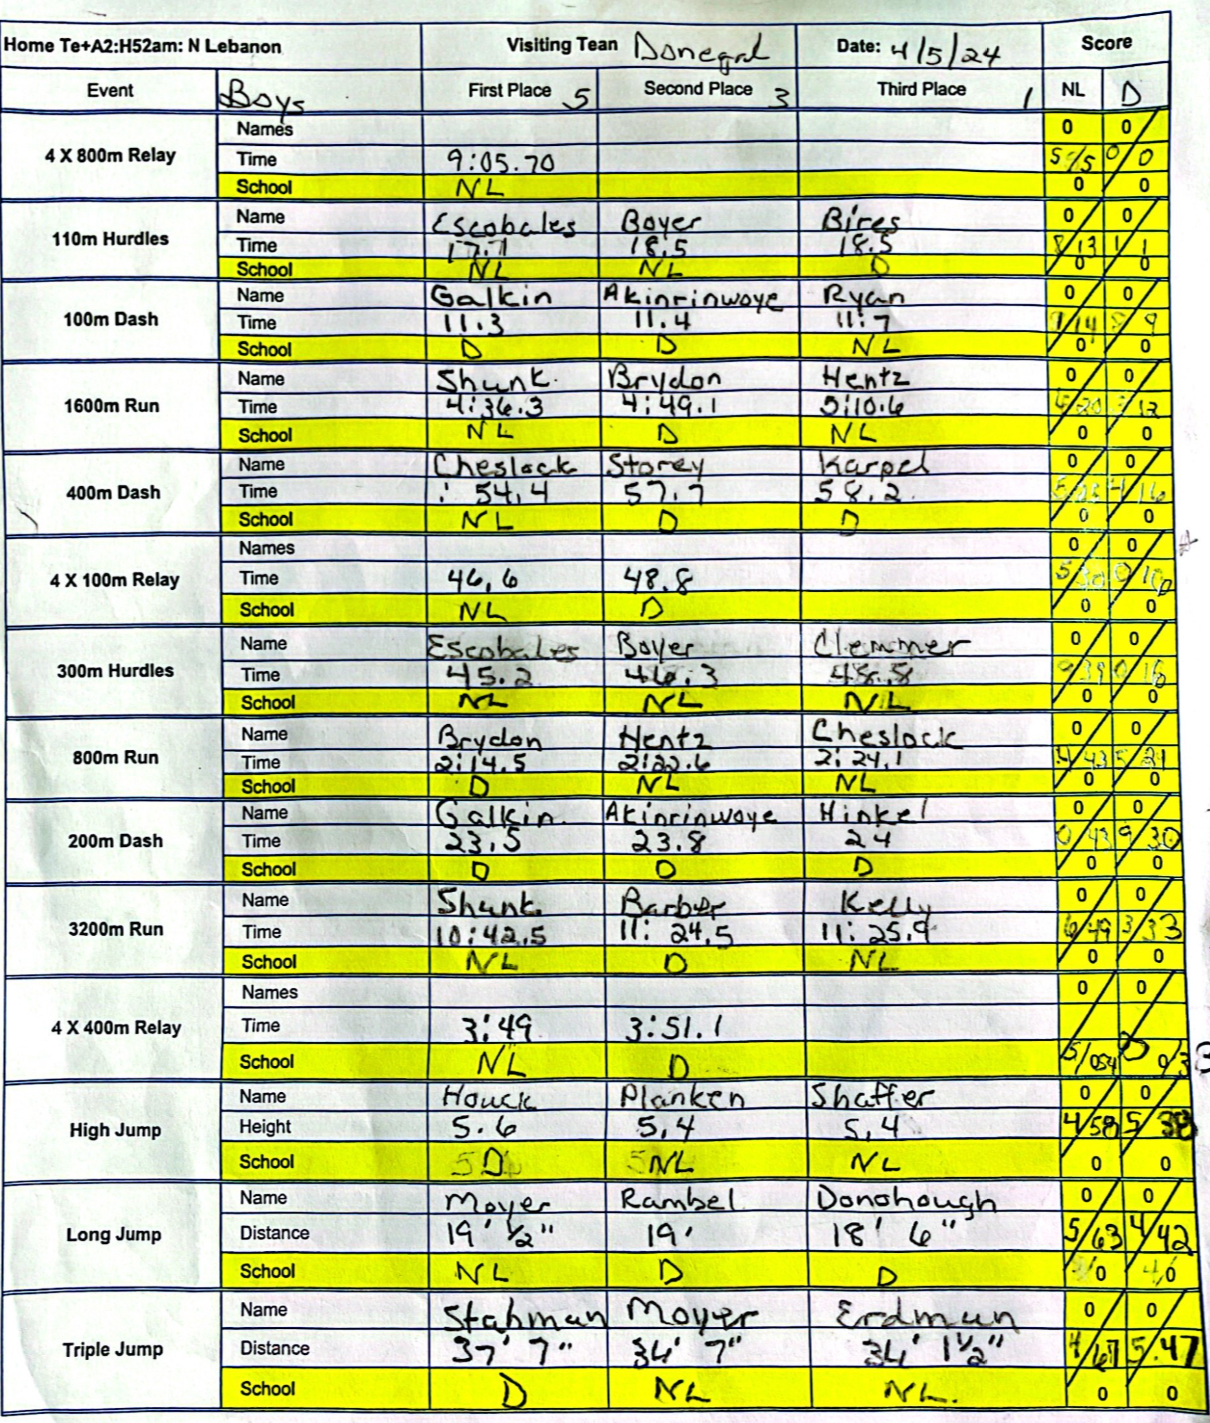 Home Te+A2:H52am: N Lebanon Visiting Tean Donegal Date: 4/5/24 Score
Event Boys First Place 5 Second Place 3 Third Place 1 NL D
Names 0 0
4 X 800m Relay Time 9:05.70 5/5 0/0
School NL 0 0
Name Escobales Boyer Bires 0 0
110m Hurdles Time 17.71 18.5 18.5 8/13 1/1
School NL NL D 0 0
Name Galkin Akinrinwoye Ryan 0 0
100m Dash Time 11.3 11.4 11.7 1/14 8/9
School D D NL 0 0
Name Shunk Brydon Hentz 0 0
1600m Run Time 4:36.3 4:49.1 5:10.6 6/20 3/12
School NL D NL 0 0
Name Cheslock Storey Karpel 0 0
400m Dash Time 54.4 57.7 58.2 5/25 4/16
School NL D D 0 0
Names 0 0
4 X 100m Relay Time 46.6 48.8 5/30 0/16
School NL D 0 0
Name Escobales Boyer Clemmer 0 0
300m Hurdles Time 45.2 46.3 48.8 9/39 0/16
School NL NL NL 0 0
Name Brydon Hentz Cheslock 0 0
800m Run Time 2:14.5 2:22.6 2:24.1 4/43 5/21
School D NL NL 0 0
Name Galkin Akinrinwoye Hinkel 0 0
200m Dash Time 23.5 23.8 24 0/43 9/30
School D D D 0 0
Name Shunk Barber Kelly 0 0
3200m Run Time 10:42.5 11:24.5 11:25.9 6/49 3/33
School NL D NL 0 0
Names 0 0
4 X 400m Relay Time 3:49 3:51.1
School NL D 5/054 0 0/33
Name Houck Planken Shaffer 0 0
High Jump Height 5.6 5,4 5,4 4/58 5/38
School D NL NL 0 0
Name Moyer Rambel Donohough 0 0
Long Jump Distance 19' ½" 19' 18' 6" 5/63 4/42
School NL D D 0 4/0
Name Stahman Moyer Erdman 0 0
Triple Jump Distance 37' 7" 34' 7" 34' 1½" 4/67 5.47
School D NL NL. 0 0